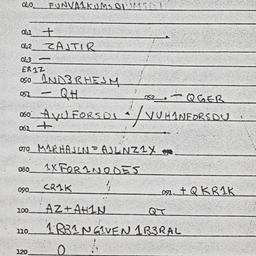 040 FUNVA1KUMSDI
041 +
042 ZAJTIR
043 -
ER1Z
050 1ND3RHESM
051 - QH 052 . - QGER
060 AVUFORSDI / VUH1NFORSDU .
061 +
070 M1RHAJLN=AJLNZ1X
080 1XFOR1NODES
090 CR1K 091. + QKR1K
100 AZ+AH1N QT
110 1R31NG1VEN 1B3RAL
120 O